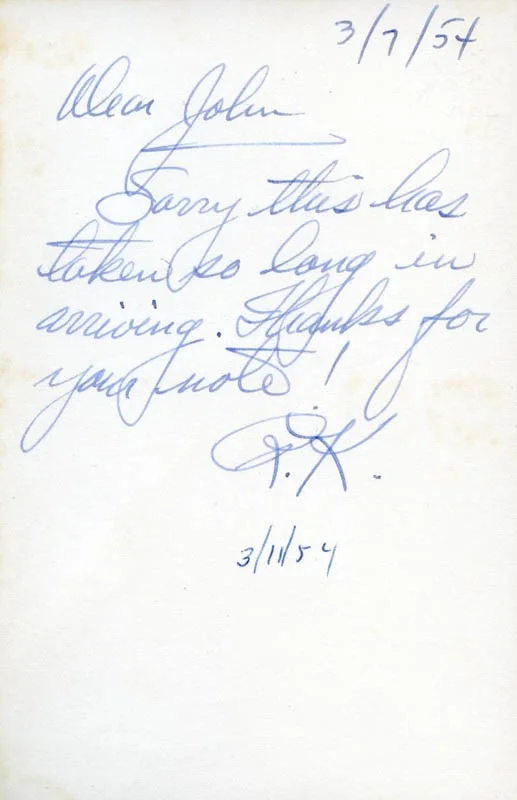 3/7/54
Dear John
Sorry this has
taken so long in
arriving. Thanks for
your note!
R.K.
3/11/54